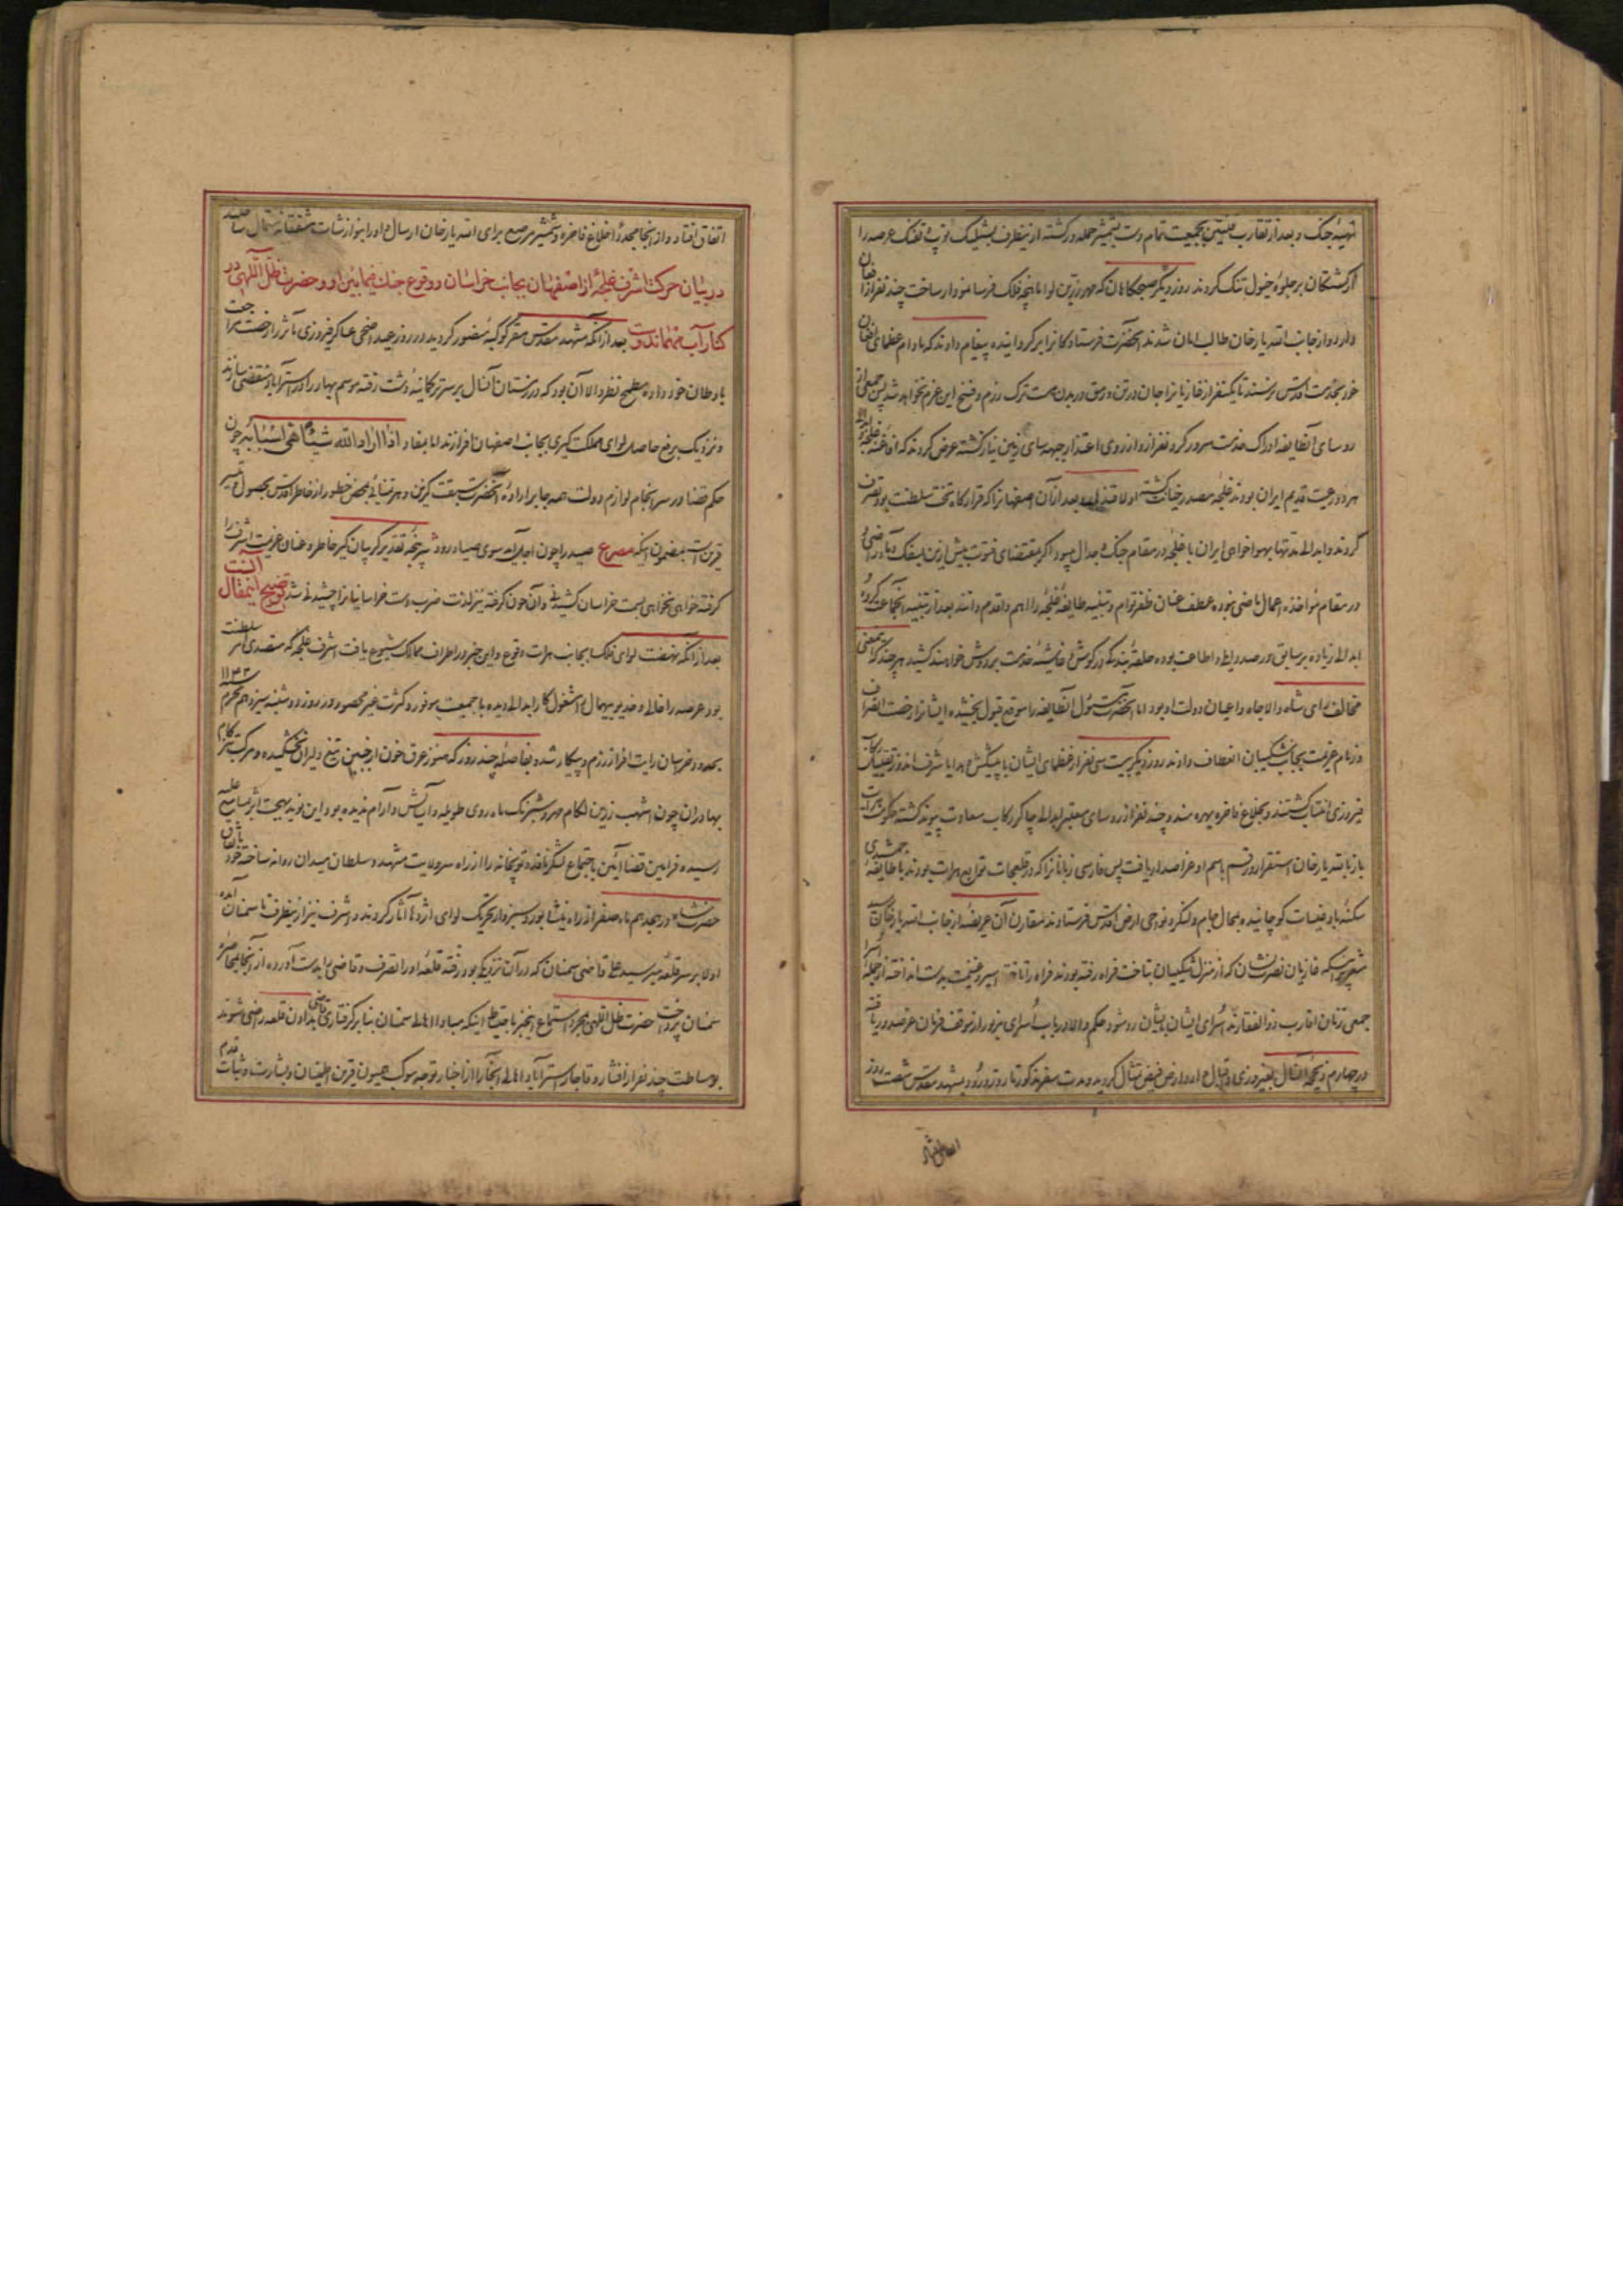 تهیهٔ جنگ و بعد از تقارب فئتین بجمعیت تمام دست بشمشیر حمله‌ور گشته از ینطرف بشلیک توپ و تفنگ عرصه را
از کشتگان بر جلوهٔ خیول تنگ کردند روز دیگر صبحگاهان که مهر زرین لوا ماهچهٔ فلک فرسا نمودار ساخت چند نفر از افغان
وارد و از جانب الله یار خان طالب امان شدند آنحضرت فرستادگانرا برگردانیده پیغام دادند که مادام عظمای افغان
خود بخدمت اقدس نرسند تا یکنفر از غازیانرا جان در تن و رمق در بدن هست ترک رزم و فسخ این عزم نخواهد شد پس جمعی از
روسای آنطایفه ادراک خدمت سرور کردنفراز و از روی اعتذار جبهه‌سای زمین نیاز گشته عرض کردند که افاغنه غلجه و ابدالی
هر دو رعیت قدیم ایران بودند غلجه مصدر خیانت گشته اولا قندهار و بعد از آن اصفهانرا که قرارگاه تخت سلطنت بود تصرف
کردند و ابدالی مدتها بهواخواهی ایران با غلجه در مقام جنگ و جدال میبود اگر بمقتضای فتوت بیش ازین بسفک دماء راضی و
در مقام مؤاخذهٔ اعمال ماضی نبوده عطف عنان ظفر توأم و تنبیه طایفهٔ غلجه را اهم و اقدم دانند بعد از تنبیه آنجماعت گروه
ابدالی زیاده بر سابق در صدد ایلی و اطاعت بوده حلقهٔ بندگی در گوش و غاشیهٔ خدمت بر دوش خواهند کشید هر چند که اینمعنی
مخالف رای شاه والاجاه و اعیان دولت او بود اما آنحضرت مسئول آنطایفه را موقع قبول بخشیده ایشانرا رخصت انصراف
و زمام عزیمت بجانب شکیبان انعطاف دادند روز دیگر بیست سی نفر از عظمای ایشان با پیشکش و هدایا شرف اندوز تقبیل رکاب
فیروزی انتساب گشتند و بخلاع فاخره بهره‌مند و چند نفر از روسای معتبر ابدالی چاکر رکاب سعادت پیوند گشته حکومت هرات
باز بالله یار خان استقرار و رقم باسم او عز اصدار یافت پس فارسی زبانانرا که در قلعجات توابع هرات بودند با طایفهٔ جمشیدی
سکنهٔ بادغیسات کوچانیده بمحال جام و لنگر و نواحی ارض اقدس فرستادند مقارن آن عریضهٔ از جانب الله یار خان رسید
مشعر بر اینکه غازیان نصرت نشان که از منزل شکیبان بتاخت فراه رفته بودند فراه را تاخته اسیر و غنیمت بدست انداخته از جمله اسرا
جمعی زنان اقارب ذوالفقارند اسرای ایشان بایشان رد شود حکم والا در باب اسرای مزبور از موقف فرمان عز صدور یافته
در چهارم ذیحجه آنسال بفیروزی و اقبال وارد ارض فیض مثال گردیدند و مدت سفر مذکور تا روز ورود بمشهد مقدس شصت روز
اتفاق افتاد
اتفاق افتاد و از آنجا مجدداً خلاع فاخره و شمشیر مرصع برای الله یار خان ارسال و او را بنوازشات مشفقانه
در بیان حرکت اشرف غلجه از اصفهان بجانب خراسان و وقوع جنگ فیمابین او و حضرت ظل اللهی در
کنار آب مهماندوست بعد از آنکه مشهد مقدس مقر کوکبهٔ منصور گردید در روز عید اضحی عساکر فیروزی مآثر را رخصت مراجعت
باوطان خود داده مطمح نظر والا آن بود که در زمستان آنسال بر سر ترکمانیهٔ دشت رفته موسم بهار را در استراباد منقضی سازند
و نزدیک برفع حاصل لوای مملکت گیری بجانب اصفهان افرازند اما بمفاد اذا اراد الله شیئا هیّأ اسبابه چون
حکم قضا در سرانجام لوازم دولت همه جا بر ارادهٔ آنحضرت سبقت گرین و هر تمنائی بمحض خطور از خاطر اقدس بحصول
قرین است بمضمون اینکه مصراع صید را چون اجل آید سوی صیاد رود سرپنجهٔ تقدیر گریبان گیر خاطر و عنان عزیمت اشرف را
گرفته خواهی نخواهی بسمت خراسان کشید و آن خون گرفته نیز لذت ضرب دست خراسانیانرا چشیدنی شد توضیح اینمقال آنست
بعد از آنکه نهضت لوای فلک سا بجانب هرات وقوع و این خبر در اطراف ممالک شیوع یافت اشرف غلجه که متصدی امر سلطنت
بود عرصه را خالی و خدیو بیهمال را مشغول کار ابدالی دیده با جمعیت موفور و کثرت غیر محصور در روز دوشنبه سیزدهم محرم ۱۱۴۲
بحدود خراسان رایت افراز رزم و پیکار شد و بفاصلهٔ چند روز که هنوز عرق خون از جبین تیغ دلیران نخشکیده و مرکب تیزگام
بهادران چون اشهب زرین لگام مهر و شبرنگ ماه روی طویله و آسایش و آرام ندیده بود این نوید بهجت اثر بمسامع علیه
رسیده فرامین قضا آئین باجتماع لشکر نافذ و توپخانه را از راه سرولایت مشهد و سلطان میدان روانه ساخته خود باتفاق
حضرت شاه در هیجدهم ماه صفر از راه نیشابور و سبزوار تحریک لوای اژدها آثار کردند و اشرف نیز از ینطرف تا سمنان آمده
اولا بر سر قلعه میر سید علی قاضی سمنان که در آن نزدیکی بود رفته قلعهٔ او را تصرف و قاضی را بدست آورده از آنجا بمحاصره
سمنان پرداخت حضرت ظل اللهی بمجرد استماع اینخبر باحتیاط اینکه مبادا اهالی سمنان بنا بر گرفتاری قاضی بدادن قلعه راضی شوند
بوساطت چند نفر از افشار و قاجار استراباد اهالی آنجا را از اخبار توجه موکب همیون قرین اطمینان و بشارت و ثبات قدم